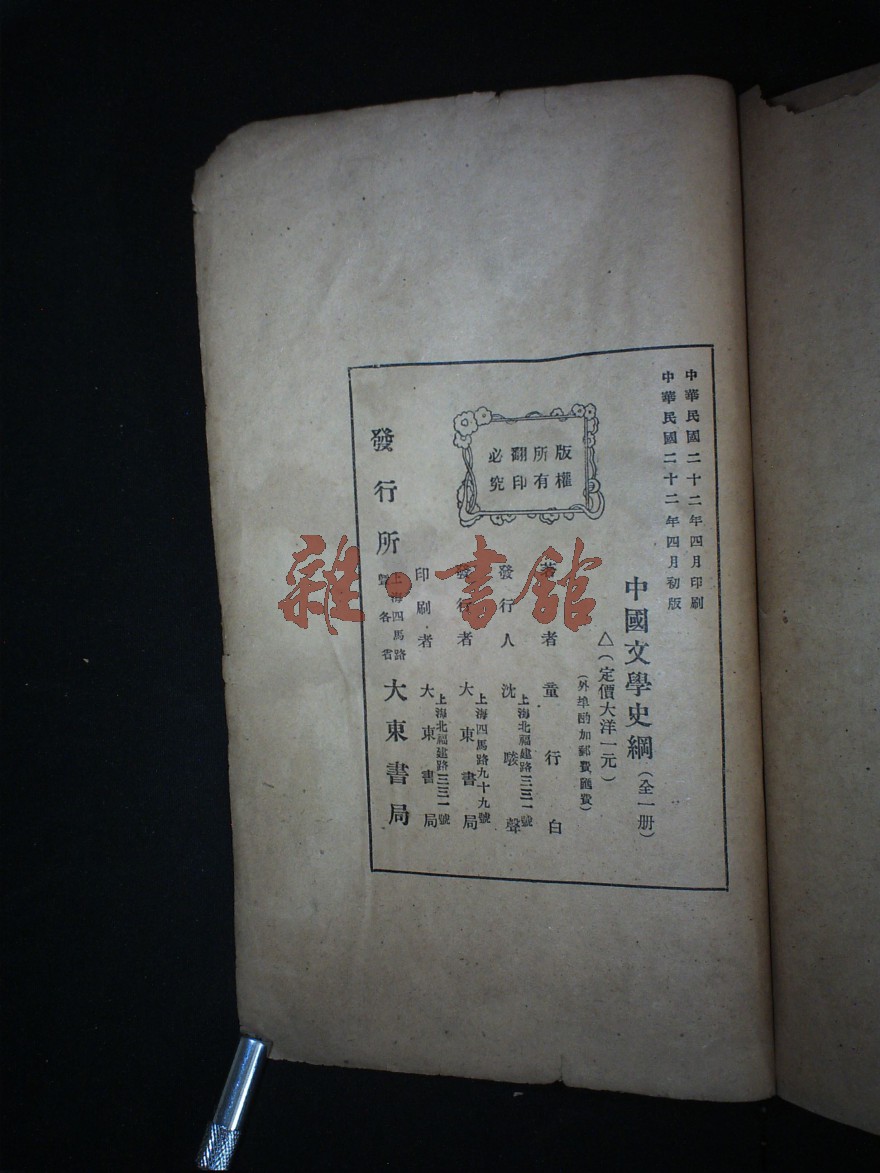 中華民國二十二年四月印刷
中華民國二十二年四月初版
中國文學史綱（全一册）
△（定價大洋一元）
（外埠酌加郵費匯費）
著者 童行白
發行人 沈駿聲
上海北福建路三三一號
發行者 大東書局
上海四馬路九十九號
印刷者 大東書局
上海北福建路三三一號
發行所 上海四馬路 各省 大東書局
版權
所有
翻印
必究
雜·書館